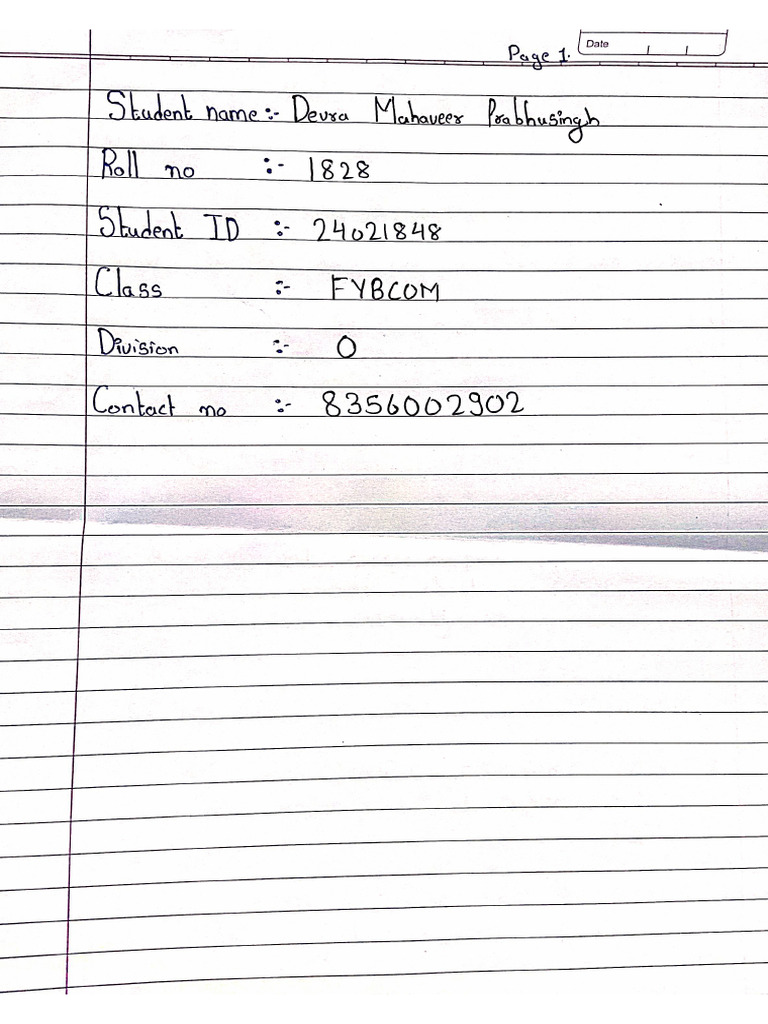 Page 1. Date
Student name :- Devra Mahaveer Prabhusingh
Roll no :- 1828
Student ID :- 24021848
Class :- FYBCOM
Division :- O
Contact no :- 8356002902